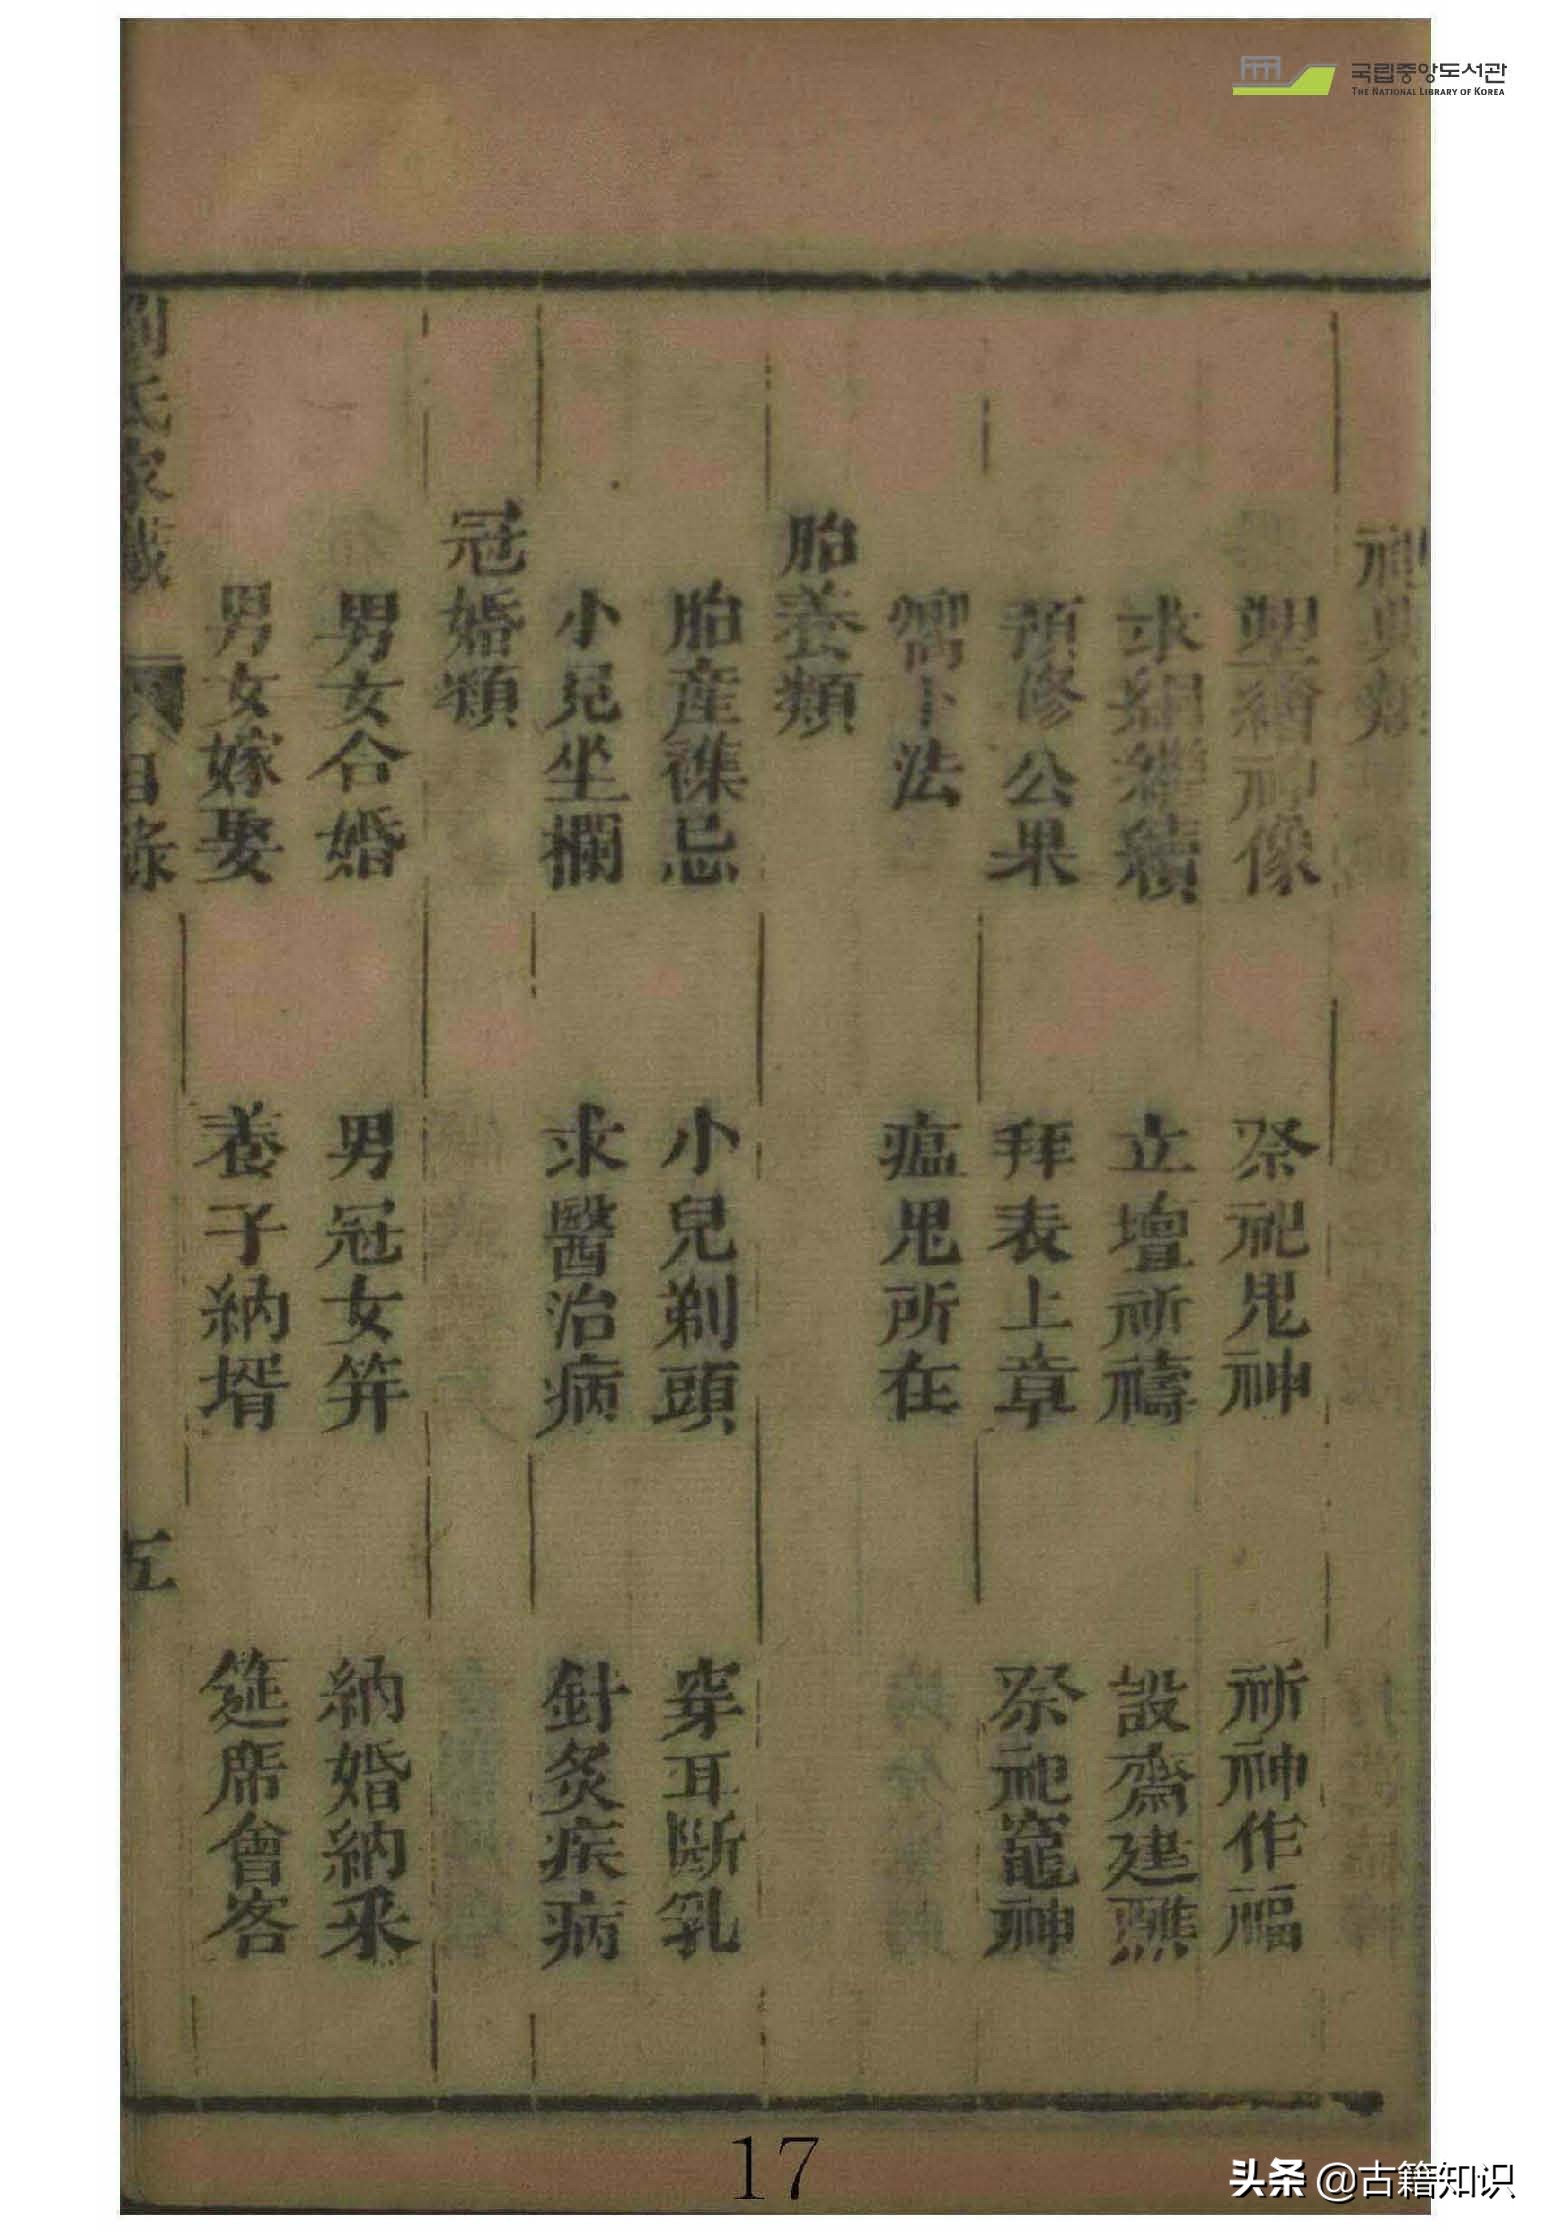 국립중앙도서관
THE NATIONAL LIBRARY OF KOREA
祀典類
塑繪神像 祭祀鬼神 祈神作福
求嗣繼續 立壇祈禱 設齋建醮
預修公果 拜表上章 祭祀竈神
卜法 瘟鬼所在
胎養類
胎産襍忌 小兒剃頭 穿耳斷乳
小兒坐欄 求醫治病 針灸疾病
冠婚類
男女合婚 男冠女筓 納婚納采
男女嫁娶 養子納壻 筵席會客
劉氏家藏 目錄 五
17
头条 @古籍知识